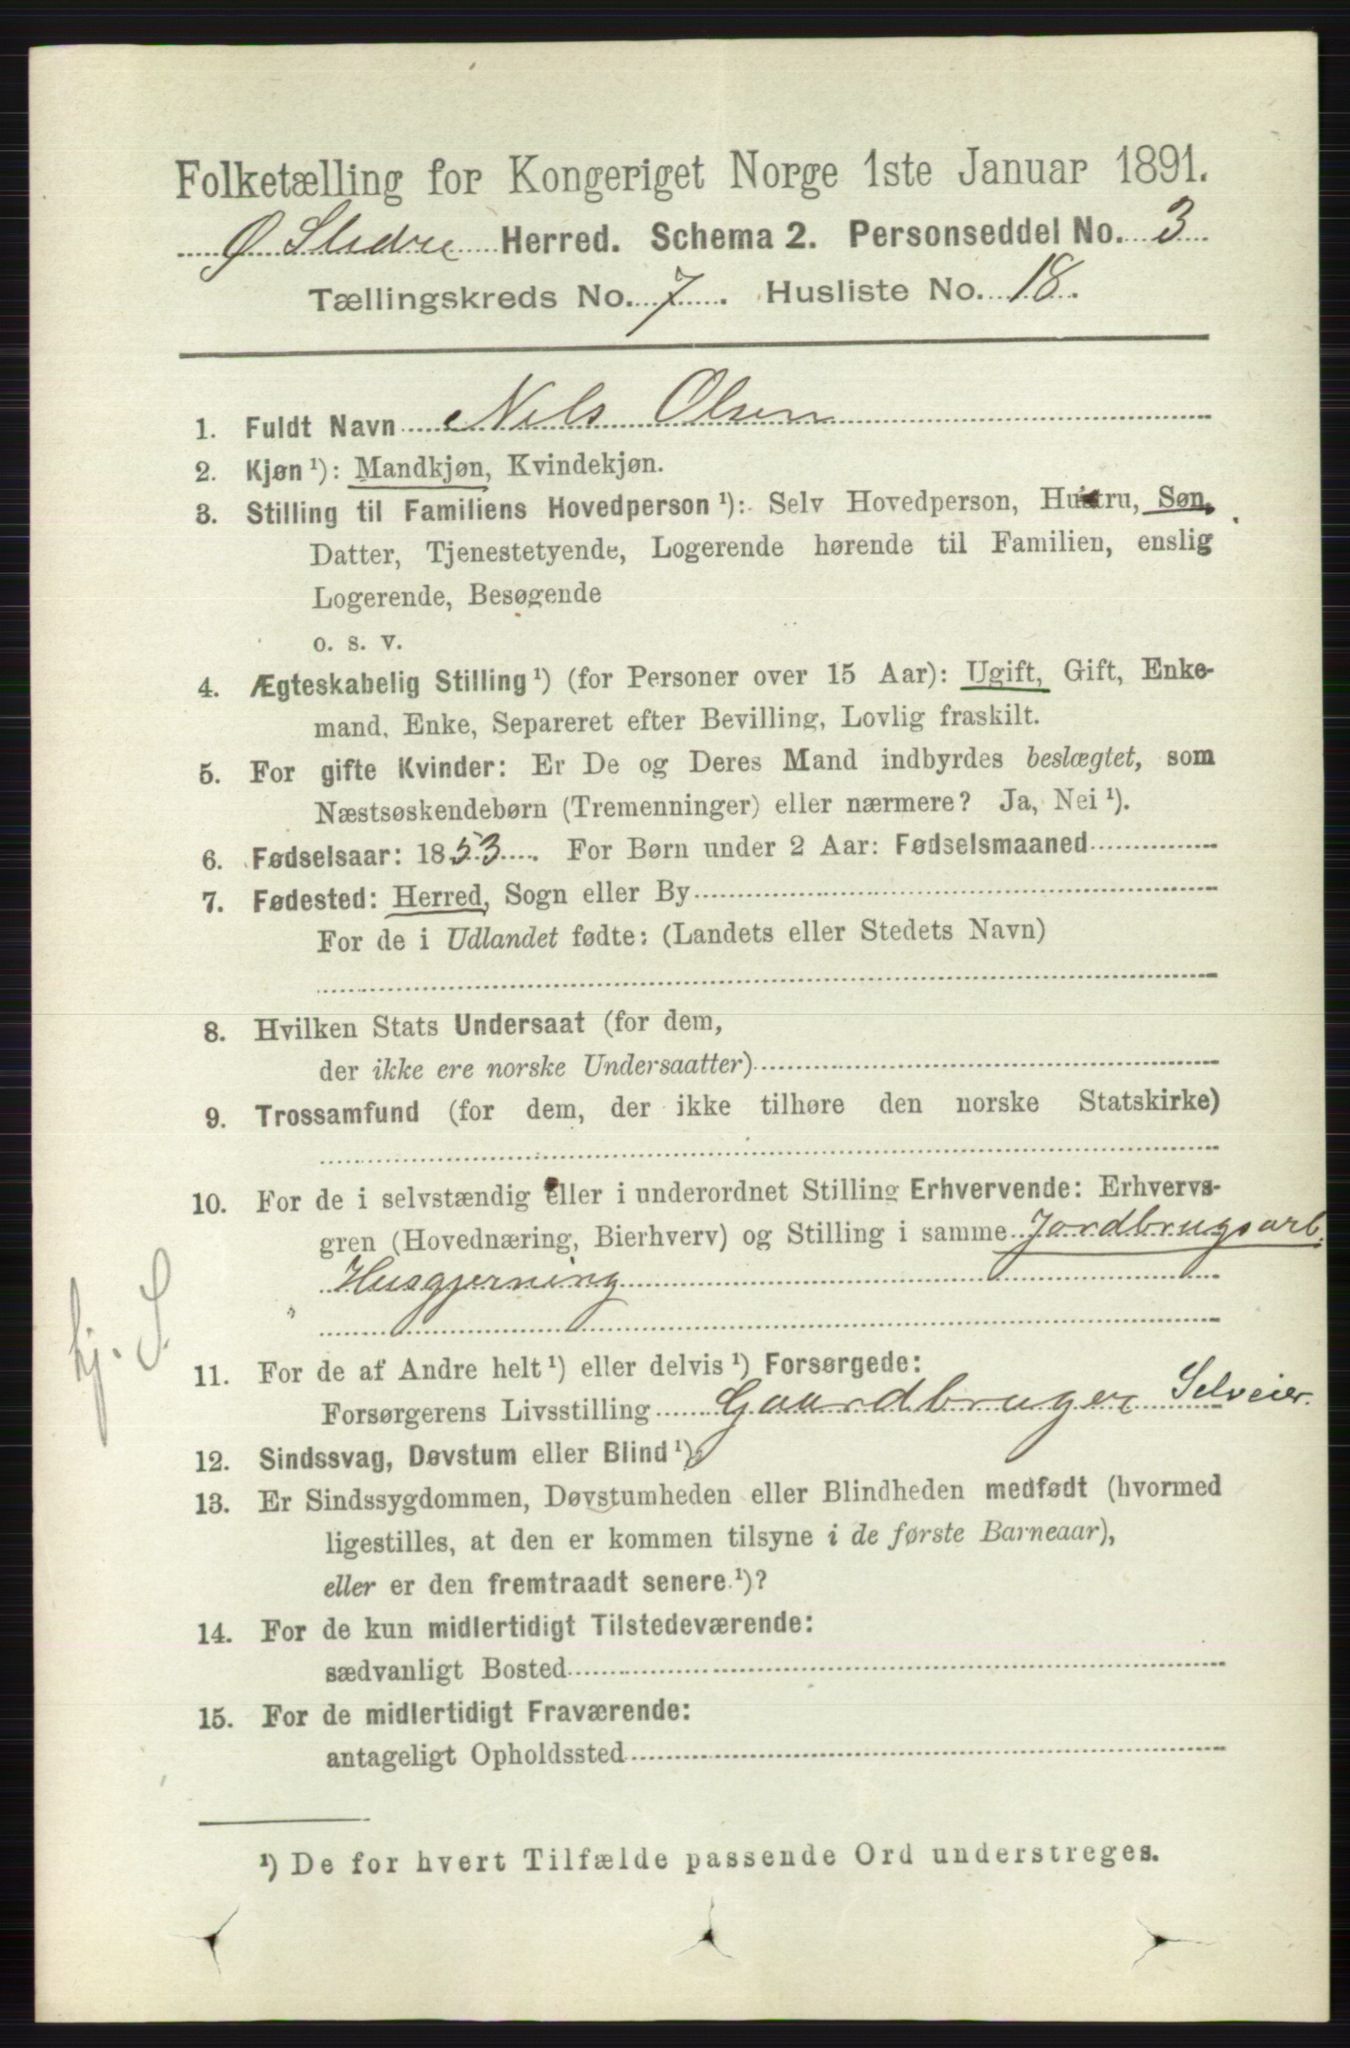 Folketælling for Kongeriget Norge 1ste Januar 1891.
Ø Slidre Herred. Schema 2. Personseddel No. 3
Tællingskreds No. 7. Husliste No. 18.
1. Fuldt Navn Nils Olsen
2. Kjøn¹): Mandkjøn, Kvindekjøn.
3. Stilling til Familiens Hovedperson¹): Selv Hovedperson, Hustru, Søn,
Datter, Tjenestetyende, Logerende hørende til Familien, enslig
Logerende, Besøgende
o. s. v.
4. Ægteskabelig Stilling¹) (for Personer over 15 Aar): Ugift, Gift, Enke-
mand, Enke, Separeret efter Bevilling, Lovlig fraskilt.
5. For gifte Kvinder: Er De og Deres Mand indbyrdes beslægtet, som
Næstsøskendebørn (Tremenninger) eller nærmere? Ja, Nei¹).
6. Fødselsaar: 1853. For Børn under 2 Aar: Fødselsmaaned
7. Fødested: Herred, Sogn eller By
For de i Udlandet fødte: (Landets eller Stedets Navn)
8. Hvilken Stats Undersaat (for dem,
der ikke ere norske Undersaatter)
9. Trossamfund (for dem, der ikke tilhøre den norske Statskirke)
10. For de i selvstændig eller i underordnet Stilling Erhvervende: Erhvervs-
gren (Hovednæring, Bierhverv) og Stilling i samme Jordbrugsarb.
Husgjerning
hj. S
11. For de af Andre helt¹) eller delvis¹) Forsørgede:
Forsørgerens Livsstilling Gaardbruger Selveier.
12. Sindssvag, Døvstum eller Blind¹).
13. Er Sindssygdommen, Døvstumheden eller Blindheden medfødt (hvormed
ligestilles, at den er kommen tilsyne i de første Barneaar),
eller er den fremtraadt senere¹)?
14. For de kun midlertidigt Tilstedeværende:
sædvanligt Bosted
15. For de midlertidigt Fraværende:
antageligt Opholdssted
¹) De for hvert Tilfælde passende Ord understreges.